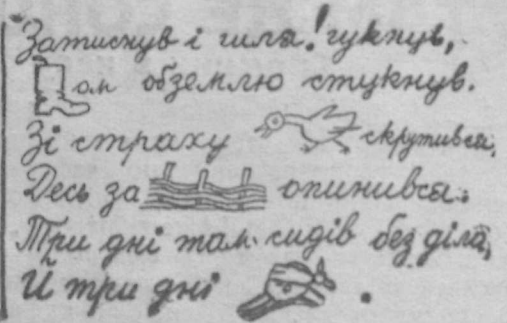 Затиснув і гиля! гукнув,
ом об землю стукнув.
Зі страху скрутився,
Десь за опинився.
Три дні там сидів без діла,
Й три дні .